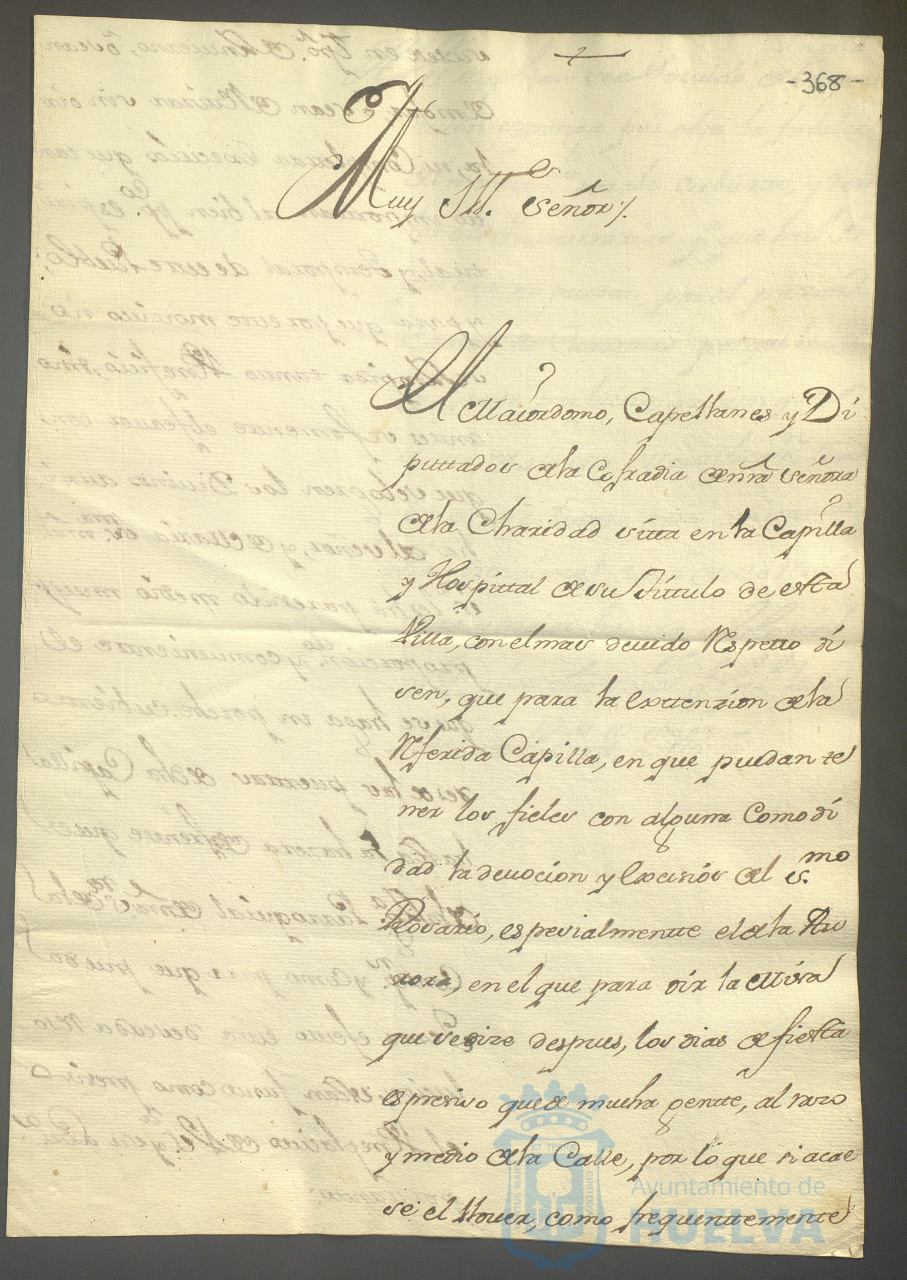 -368-
Muy Ill.e Señor
El Maiordomo, Capellanes y Di
puttados de la Cofradia de nrã Señora
de la Charidad sitta en la Capilla
y Hospittal de su Títtulo de estta
Villa, con el mas devido Respetto dí
sen, que para la exttenzion de la
Referida Capilla, en que puedan te
ner los fieles con alguna Comodí
dad la devocion y exercisio del S.mo
Rosario, espesialmentte el de la Au
rora, en el que para oir la Missa
que se dize despues, los dias de fiestta
es presiso quede mucha gentte, al raso
y medio de la Calle, por lo que si acae
se el llover, como frequenttementte
Ayuntamiento de
HUELVA